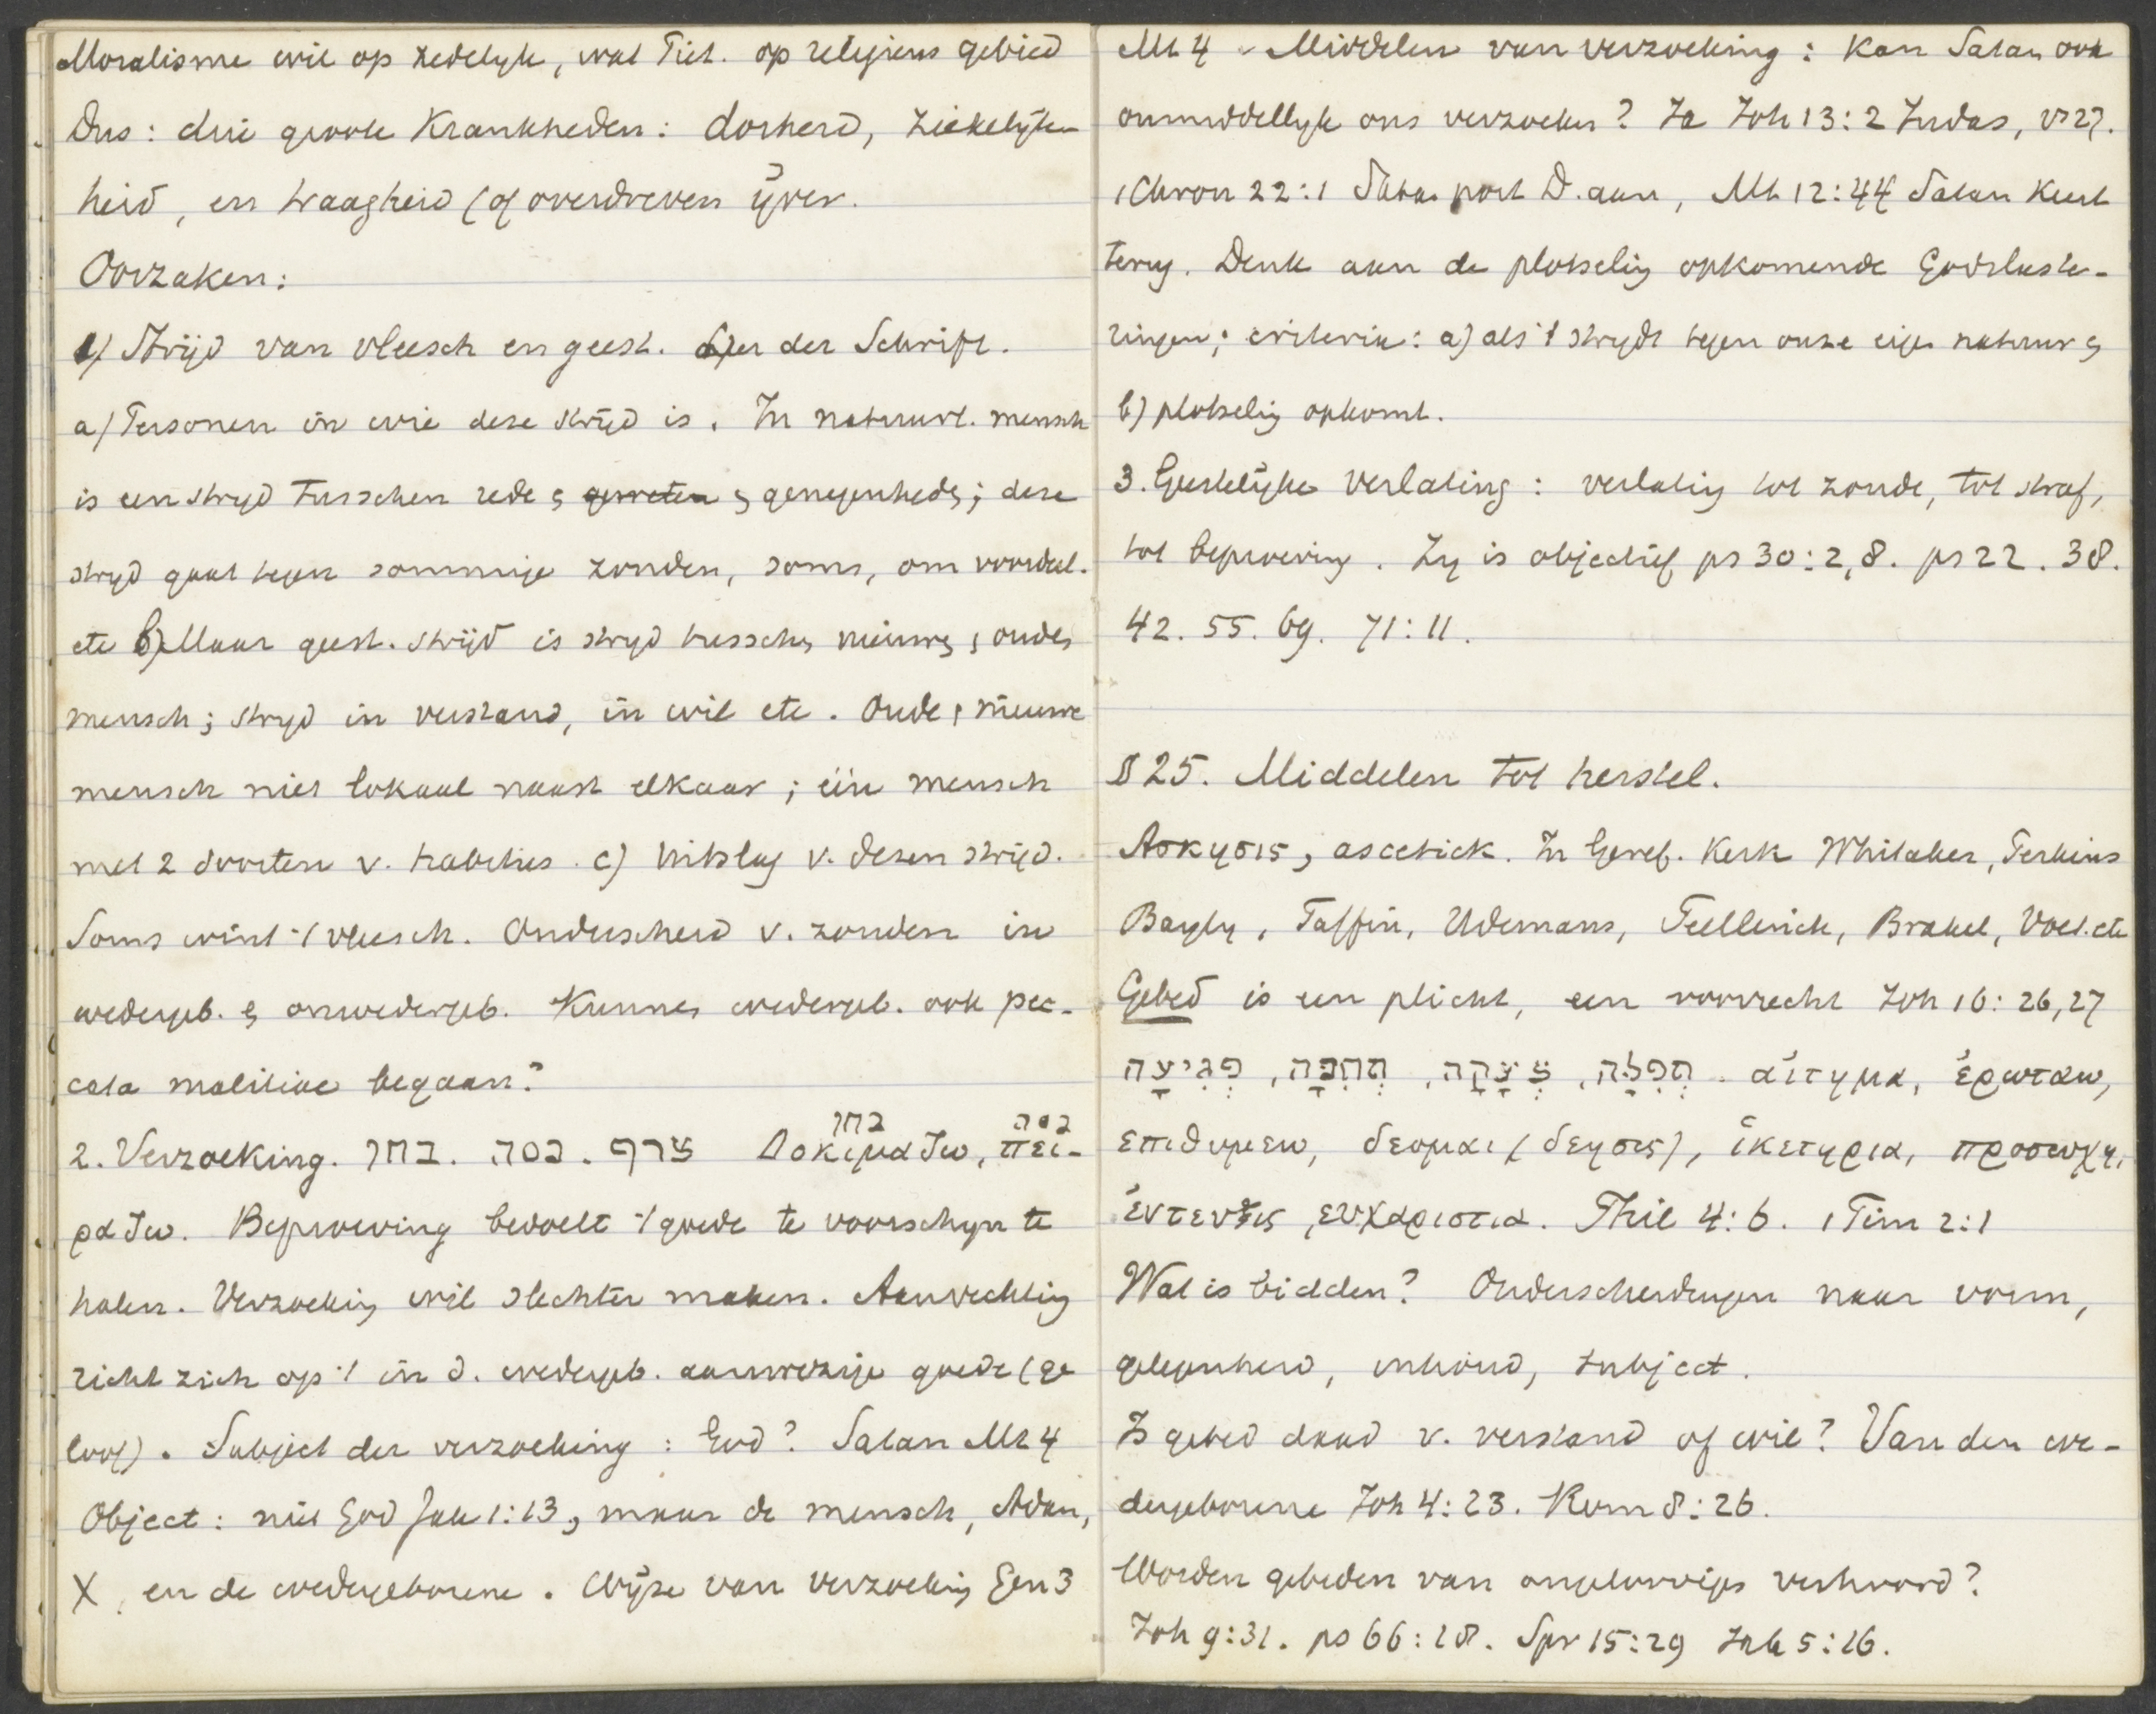 Moralisme wil op zedelyk, wat Piet. op religieus gebied
Dus: drie groote Krankheden: dorheid, ziekelyk-
heid, en traagheid (of overdreven ÿver.
Oorzaken:
1) Strijd van vleesch en geest. Leer der Schrift.
a) Personen in wie deze strijd is. In natuurl. mensch
is een stryd tusschen rede en geweten en genegenhedn; deze
stryd gaat tegen sommige zonden, soms, om voordeel.
etc b) Maar geest. strijd is stryd tusschen nieuwen en ouden
mensch; stryd in verstand, in wil etc. Oude en nieuwe
mensch niet lokaal naast elkaar; één mensch
met 2 soorten v. habitus. c) Uitslag v. dezen strijd.
Soms wint 't vleesch. Onderscheid v. zonden in
wedergeb. en onwedergeb. Kunnen wedergeb. ook pec-
cata malitiae begaan?
בחן נסה
2. Verzoeking. בחן. נסה. צרף Δοκιμαζω, πει-
ραζω. Beproeving bedoelt 't goede te voorschyn te
halen. Verzoeking wil slechter maken. Aanvechting
richt zich op 't in d. wedergeb. aanwezige goede (ge
loof). Subject der verzoeking: God? Satan Mt 4
Object: niet God Jak 1:13, maar de mensch, Adam,
X, en de wedergeborene. Wÿze van verzoeking Gen 3
Mt 4 - Middelen van verzoeking: Kan Satan ook
onmiddellyk ons verzoeken? Ja Joh 13:2 Judas, vs 27.
1 Chron 22:1 Satan port D. aan, Mt 12:44 Satan keert
terug. Denk aan de plotselig opkomende Godslaste-
ringen; criteria: a) als 't strydt tegen onze eigen natuur en
b) plotselig opkomt.
3. Geestelÿke Verlating: verlating tot zonde, tot straf,
tot beproeving. Zy is objectief ps 30:2,8. ps 22. 38.
42. 55. 69. 71:11.
§ 25. Middelen tot herstel.
Ασκησις, ascetick. In Geref. Kerk Whitaker, Perkins
Bayly, Taffin, Udemans, Teellinck, Brakel, Voet. etc
Gebed is een plicht, een voorrecht Joh 16:26,27
תְפִלָה, צְעָקָה, תְחִנָּה, פְגִיעָה. αἰτημα, ἐρωταω,
επιθυμεω, δεομαι (δεησις), ἱκετηρια, προσευχη,
ἐντευξις, ευχαριστια. Phil 4:6. 1 Tim 2:1
Wat is bidden? Onderscheidingen naar vorm,
gelegenheid, inhoud, subject.
Is gebed daad v. verstand of wil? Van den we-
dergeborene Joh 4:23. Rom 8:26.
Worden gebeden van ongeloovigen verhoord?
Joh 9:31. ps 66:18. Spr 15:29 Jak 5:16.